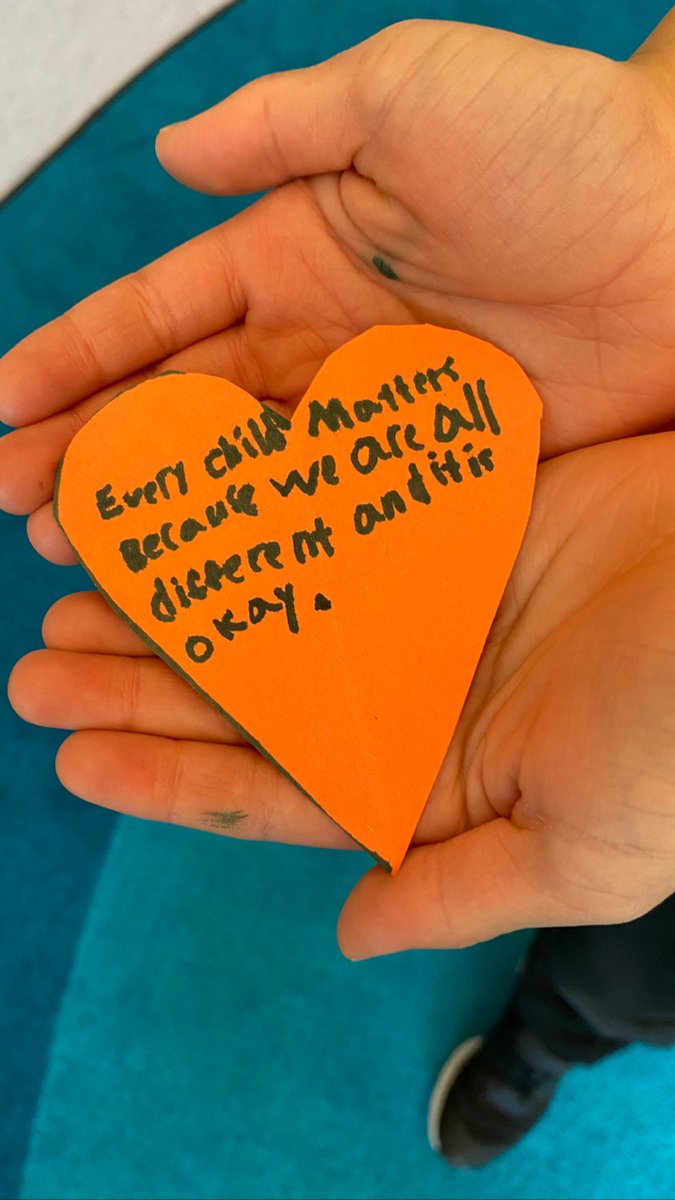 Every child Matters
Because we are all
different and it is
okay.